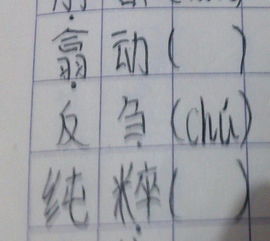 翕动( )
反刍(chú)
纯粹( )